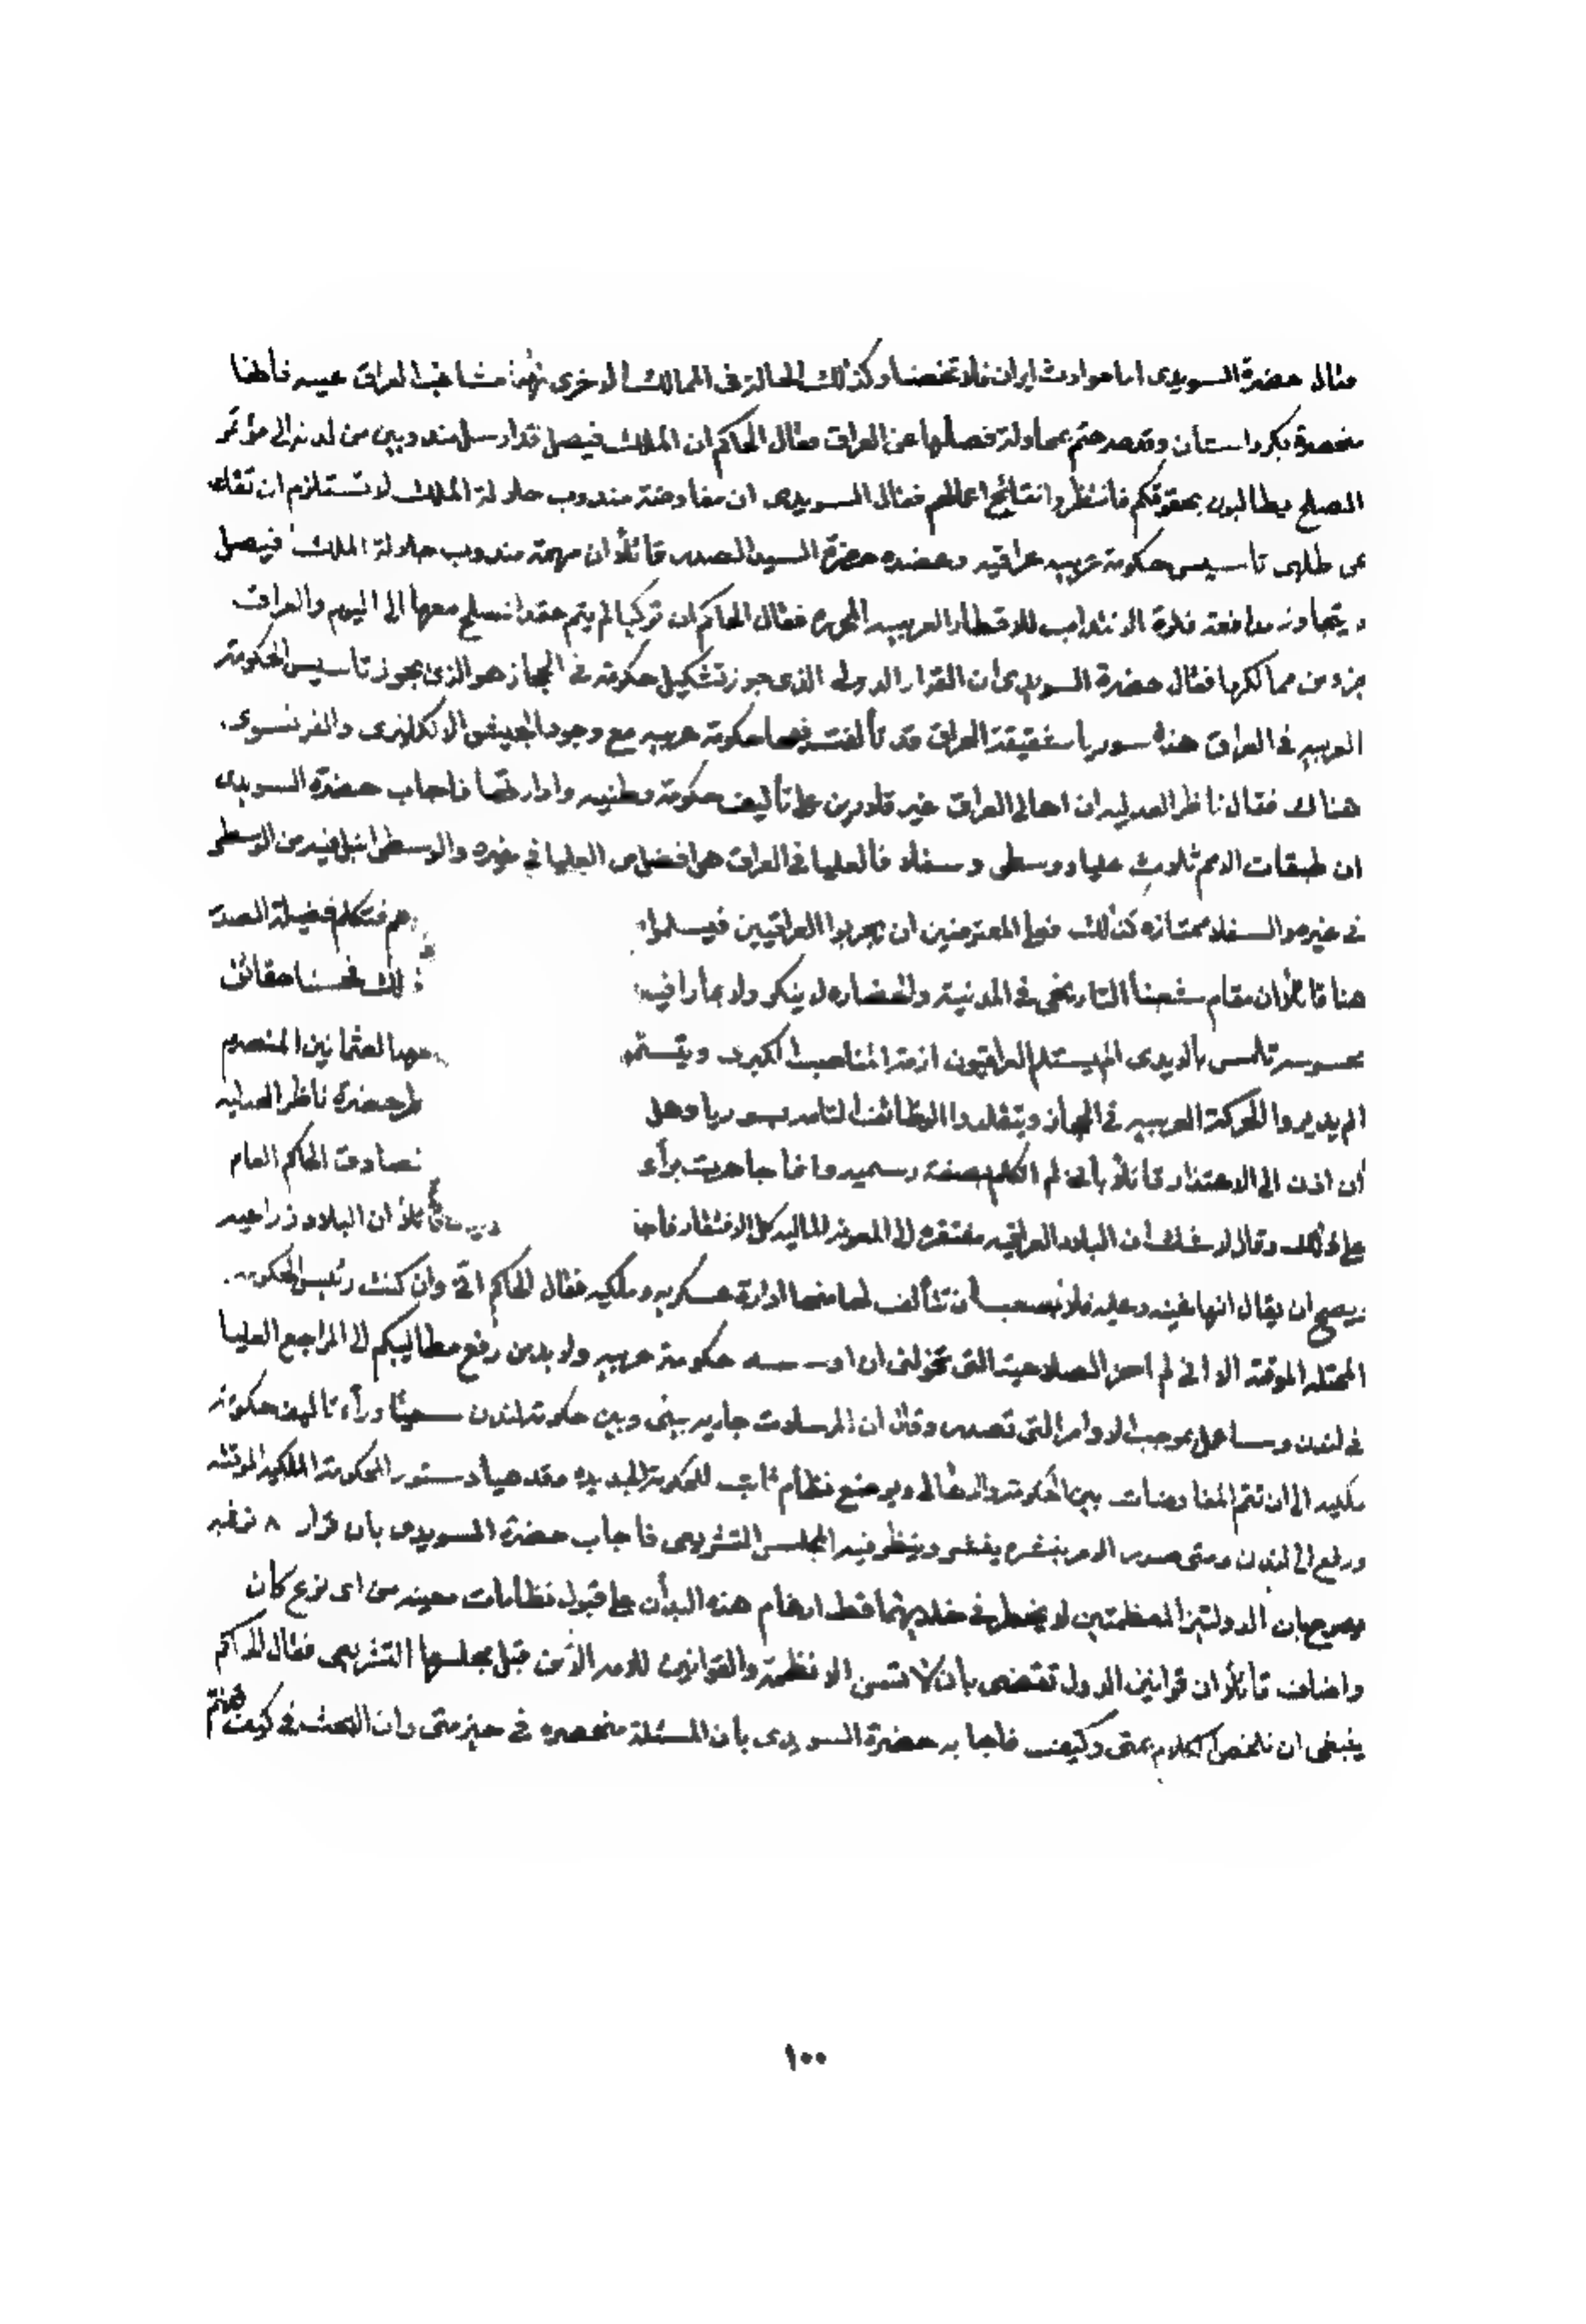 فقال حضرة السويدى اما حوادث ايران فلا تخصنا وكذلك الحالة فى الممالك الاخرى مشاغب العراق
منحصرة بكردستان وقد صرحتم بمحاولة فصلها عن العراق فقال الحاكم ان الملك فيصل قد ارسل مندوبين من لدنه الى مؤتمر
الصلح يطالبون بحقوقكم فانتظروا نتائج اعمالهم فقال السويدى ان مفاوضة مندوب جلالة الملك لا تستلزم ان
عن طلب تأسيس حكومة عربيه عراقيه وعضده حضرة السيد الصدر قائلاً ان مهمة مندوب جلالة الملك فيصل
مدافعة فكرة الانتداب للاقطار العربيه المحرره فقال الحاكم ان تركيا لم يتم عقد الصلح معها الى اليوم والعراق
جزء من ممالكها فقال حضرة السويدى ان القرار الدولى الذى جوز تشكيل حكومة فى الحجاز هو الذى يجوز تأسيس الحكومة
العربيه فى العراق هذه سوريا شقيقة العراق قد تألفت فيها حكومة عربيه مع وجود الجيش الانكليزى والفرنسوى
هناك فقال ناظر العدليه ان اهالى العراق غير قادرين على تأليف حكومة وطنيه وادارتها فاجاب حضرة السويدى
ان طبقات الامم ثلاث عليا ووسطى وسفلا فالعليا فى العراق هى افضل من العليا فى غيره والوسطى انبل فيه من الوسطى
فى غيره والسفلا ممتازه كذلك فعلى المعترضين ان يجربوا العراقيين فيسلموا فتكلم فضيلة الصدر
هنا قائلاً ان مقام شعبنا التاريخى فى المدنية والحضاره لا ينكر ولا يمارا فيه ذلك فحسنا حقائق
محسوسة تلمس بالايدى الم يستلم العراقيون ازمة المناصب الكبرى العثمانيين المنصرم
الم يديروا الحركة العربيه فى الحجاز ويتقلدوا الوظائف بسوريا وهل حضرة ناظر العدليه
الى الاعتذار قائلاً بأنه لم اتكلم بصفة رسميه وانما جاهرت برأى فصادق الحاكم العام
على ذلك وقال لا شك ان البلاد العراقيه مفتقره الى المعونة الماليه كل الافتقار قائلاً ان البلاد زراعيه
ويصح ان يقال انها غنيه وعليه فلا يصعب ان تتألف لها منها ادارة عسكريه وملكيه فقال الحاكم انى وان كنت رئيس الحكومه
المحتله الموقتة الا انى لم احرز الصلاحية التى تخولنى ان اؤسس حكومة عربيه ولا بد من رفع مطاليبكم الى المراجع العليا
فى لندن وساعمل بموجب الاوامر التى تصدر وقال ان المراسلات جاريه بينى وبين حكومة لندن سعياً وراء تأليف حكومة
ملكيه الى ان تتم المفاوضات بين الحكومة والاهالى ويوضع نظام ثابت للحكومة الجديده وقد هيأ دستور الحكومة الملكيه الموقته
ورفع الى لندن ومتى صدر الامر بنشره يفشى وينظر فيه المجلس التشريعى فاجاب حضرة السويدى بان قرار ٨ نوفمبر
يصرح بان الدولتين العظيمتين لا يخطر فى خلديهما قط ارغام هذه البلدان على قبول نظامات معينه من اى نوع كان
واضاف قائلاً ان قوانين الدول تقتضى بان لا تسن الانظمة والقوانين للامم الا من قبل مجلسها التشريعى فقال الحاكم
ينبغى ان نلخص الكلام بمتى وكيف فاجابه حضرة السويدى بأن المسئلة منحصره فى حيز متى وان البحث فى كيف
١٠٠